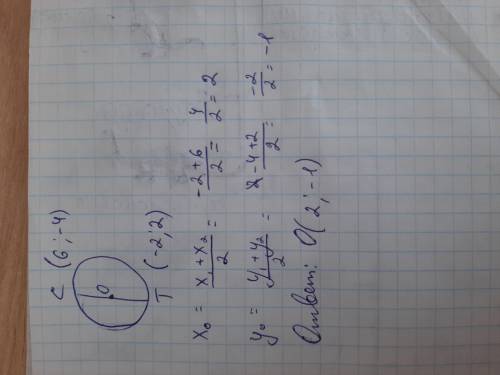 C (6;-4)
O
T (-2;2)
x₀ = (x₁ + x₂)/2 = (-2+6)/2 = 4/2 = 2
y₀ = (y₁ + y₂)/2 = (-4+2)/2 = -2/2 = -1
Ответ: O(2;-1)